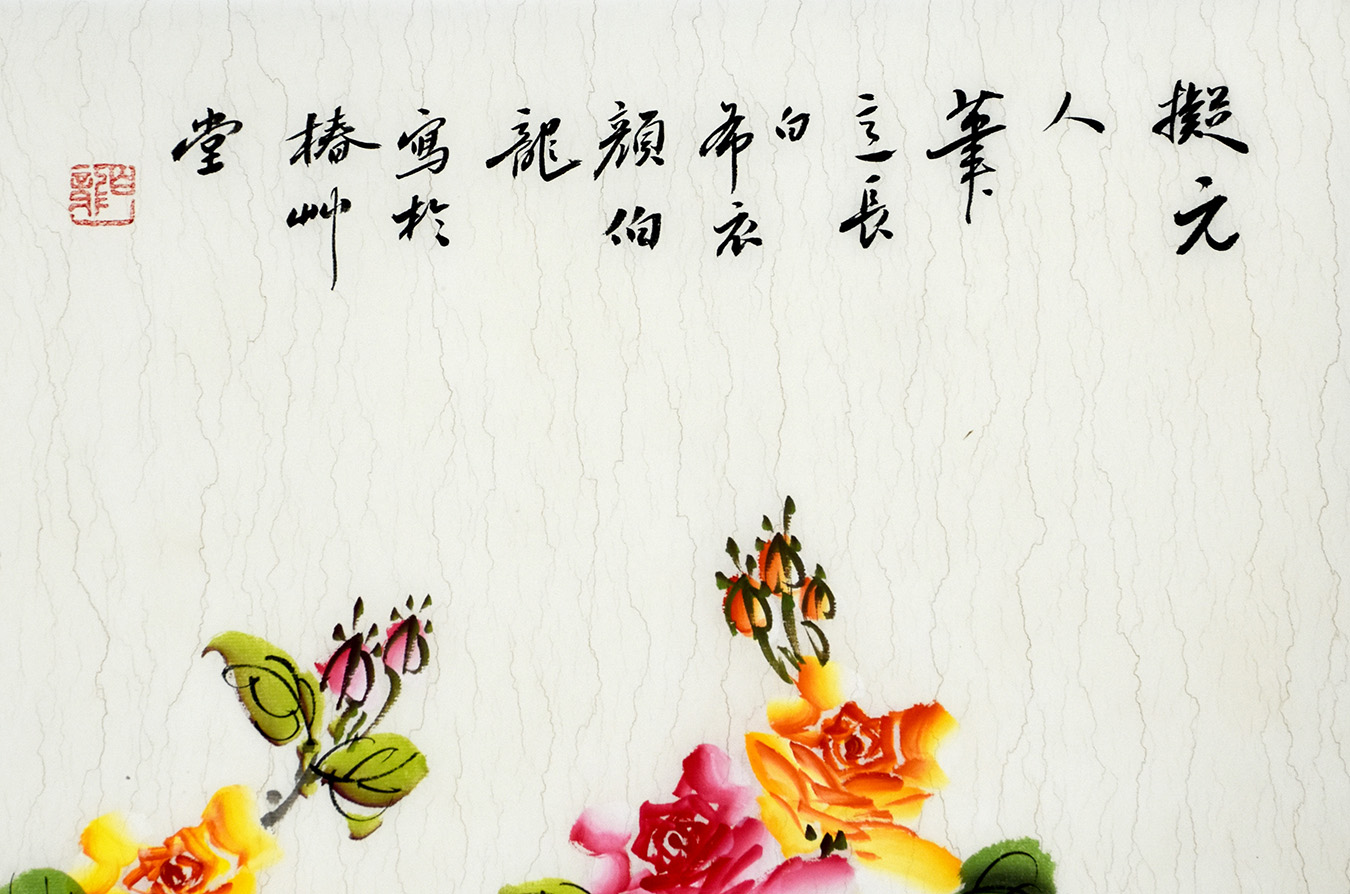 擬元
人
筆
長
白
希衣
顏伯
龍
寫於
椿艸
堂